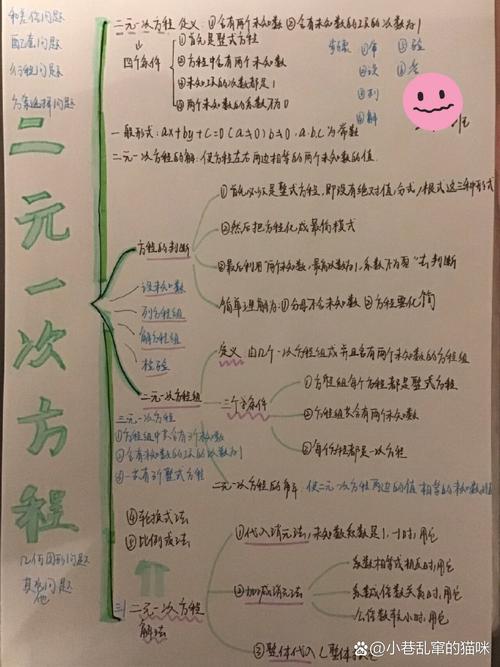 和差倍问题
配套问题
行程问题
方案选择问题
二元一次方程
几何图形问题
其它问题
他
二元一次方程 定义：①含有两个未知数 ②含有未知数的项的次数为1
四个条件
①首先是整式方程
②方程中含有两个未知数
③未知项的次数都是1
④两个未知数的系数不为0
步骤 ①审
②设
③列
④解
⑤验
⑥答
一般形式：ax+by+c=0(a≠0)b≠0，a.b.c为常数
二元一次方程的解：使方程左右两边相等的两个未知数的值
方程的判断
①首先必须是整式方程，即没有绝对值，分式，根式这三种形式
②然后把方程化成最简模式
③最后利用"两个未知数，最高次数为1，系数不为零"去判断
简单理解为：①分母不含未知数 ②方程要化简
设未知数
列方程组
解方程组
检验
二元一次方程组
定义：由几个一次方程组成并且含有两个未知数的方程组
三个条件
①方程组每个方程都是整式方程
②方程组共含有两个未知数
③每个方程都是一次方程
三元一次方程
①方程组中共含有3个未知数
②含有未知数的项的次数为1
③一共有3个整式方程
二元一次方程的解：使二元一次方程两边的值相等的未知数的值
④轮换式法
⑤比例设法
三 二元一次方程
解法
①代入消元法，未知数系数是1,-1时，用它
②加减消元法
系数相等或相反时，用它
系数成倍数关系时，用它
公倍数较小时，用它
③整体代入（整体
知乎 @小巷乱窜的猫咪